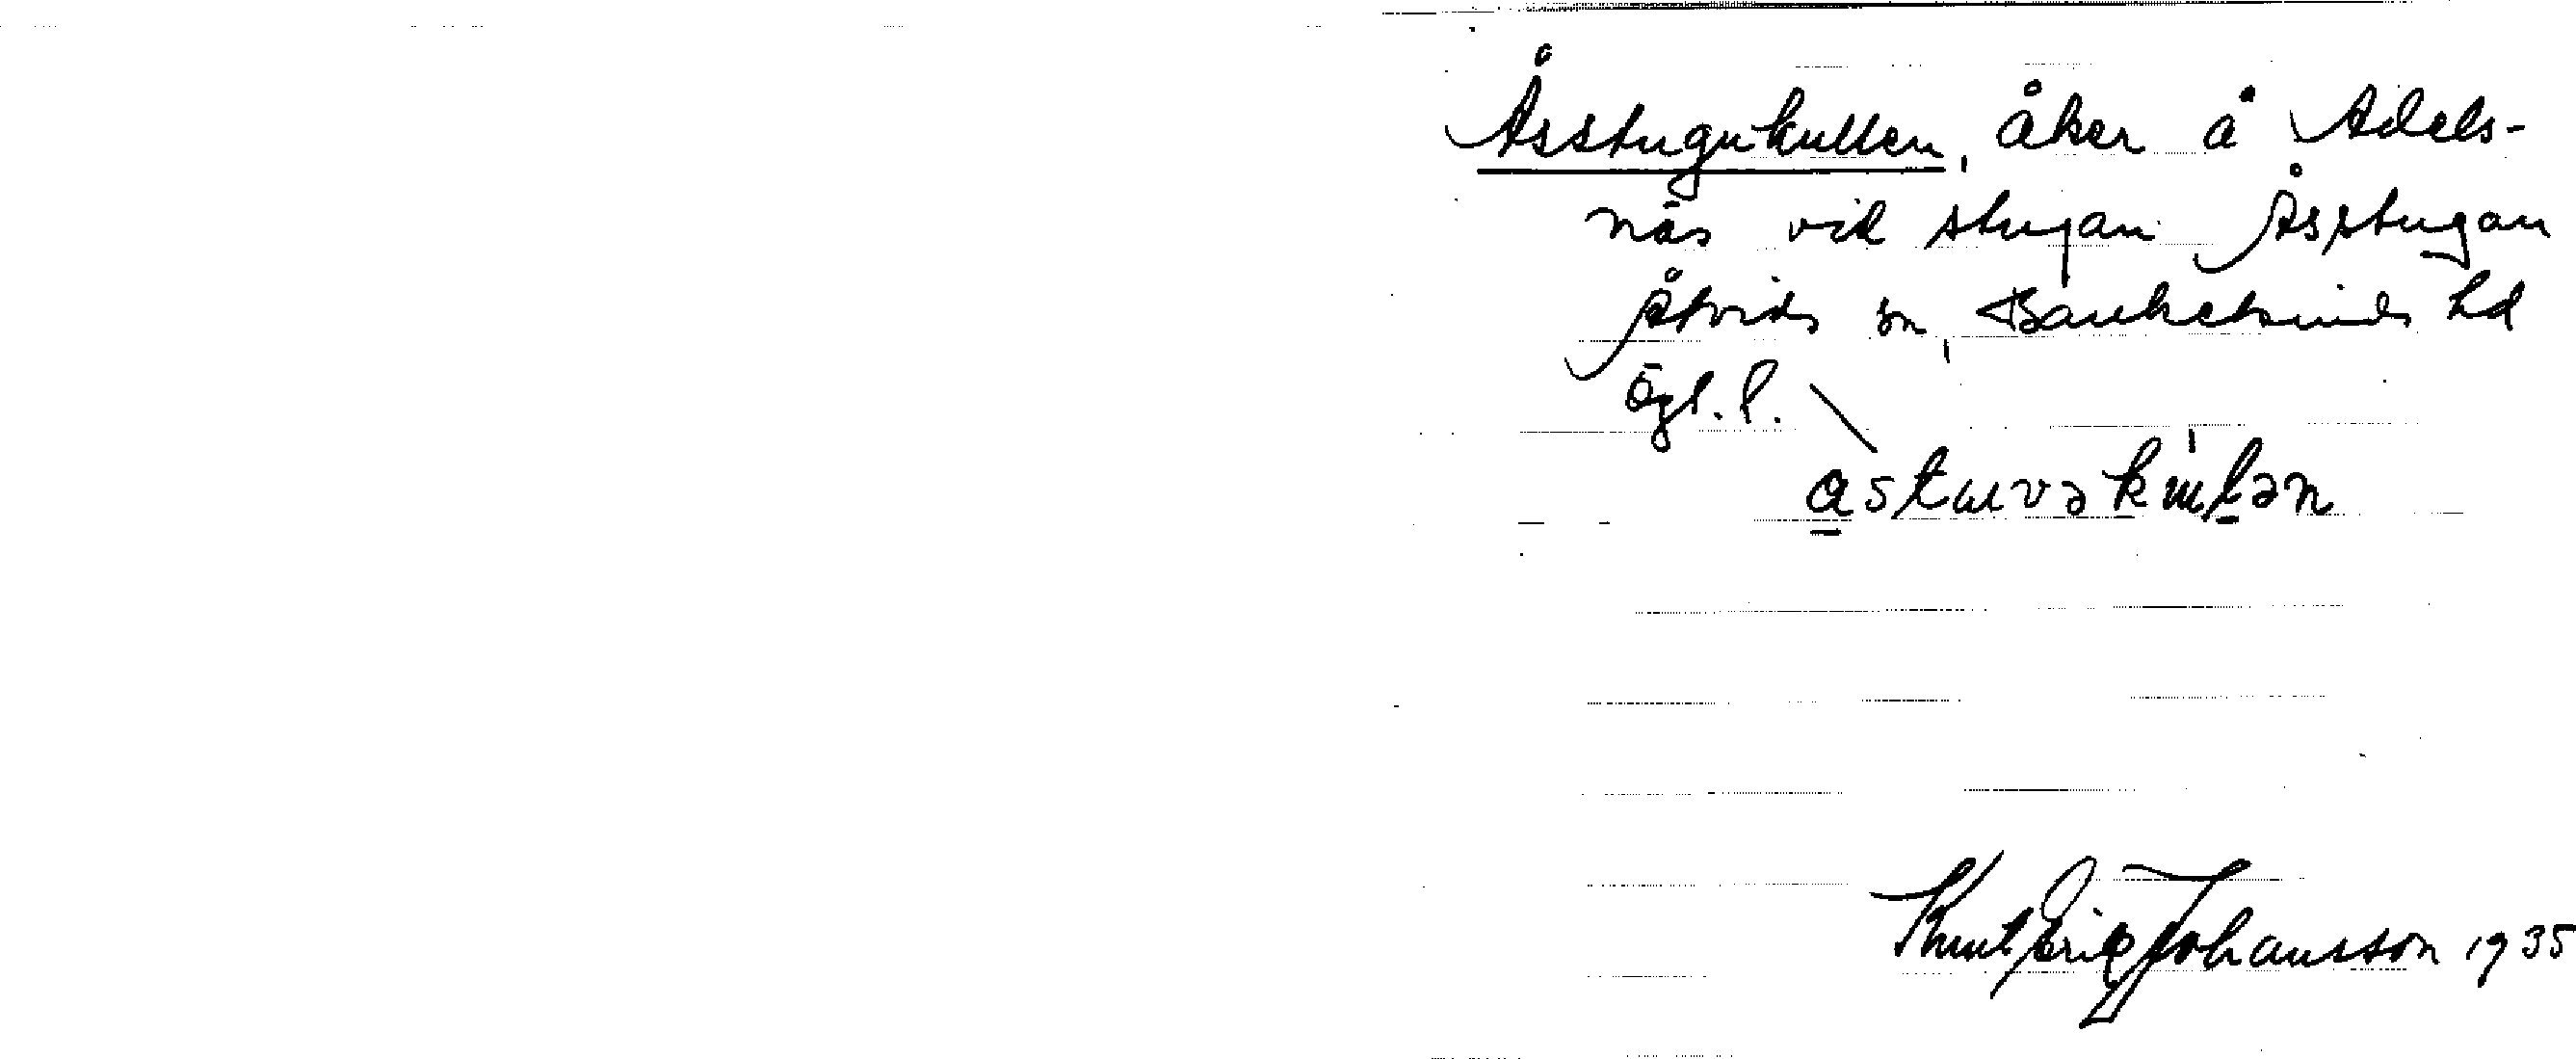 Åsstugukullen, åker å Adels-
näs vid stugan Åsstugan
Åtvids sn, Bankekinds hd
Ögl. l.
Knut Erik Johansson 1935